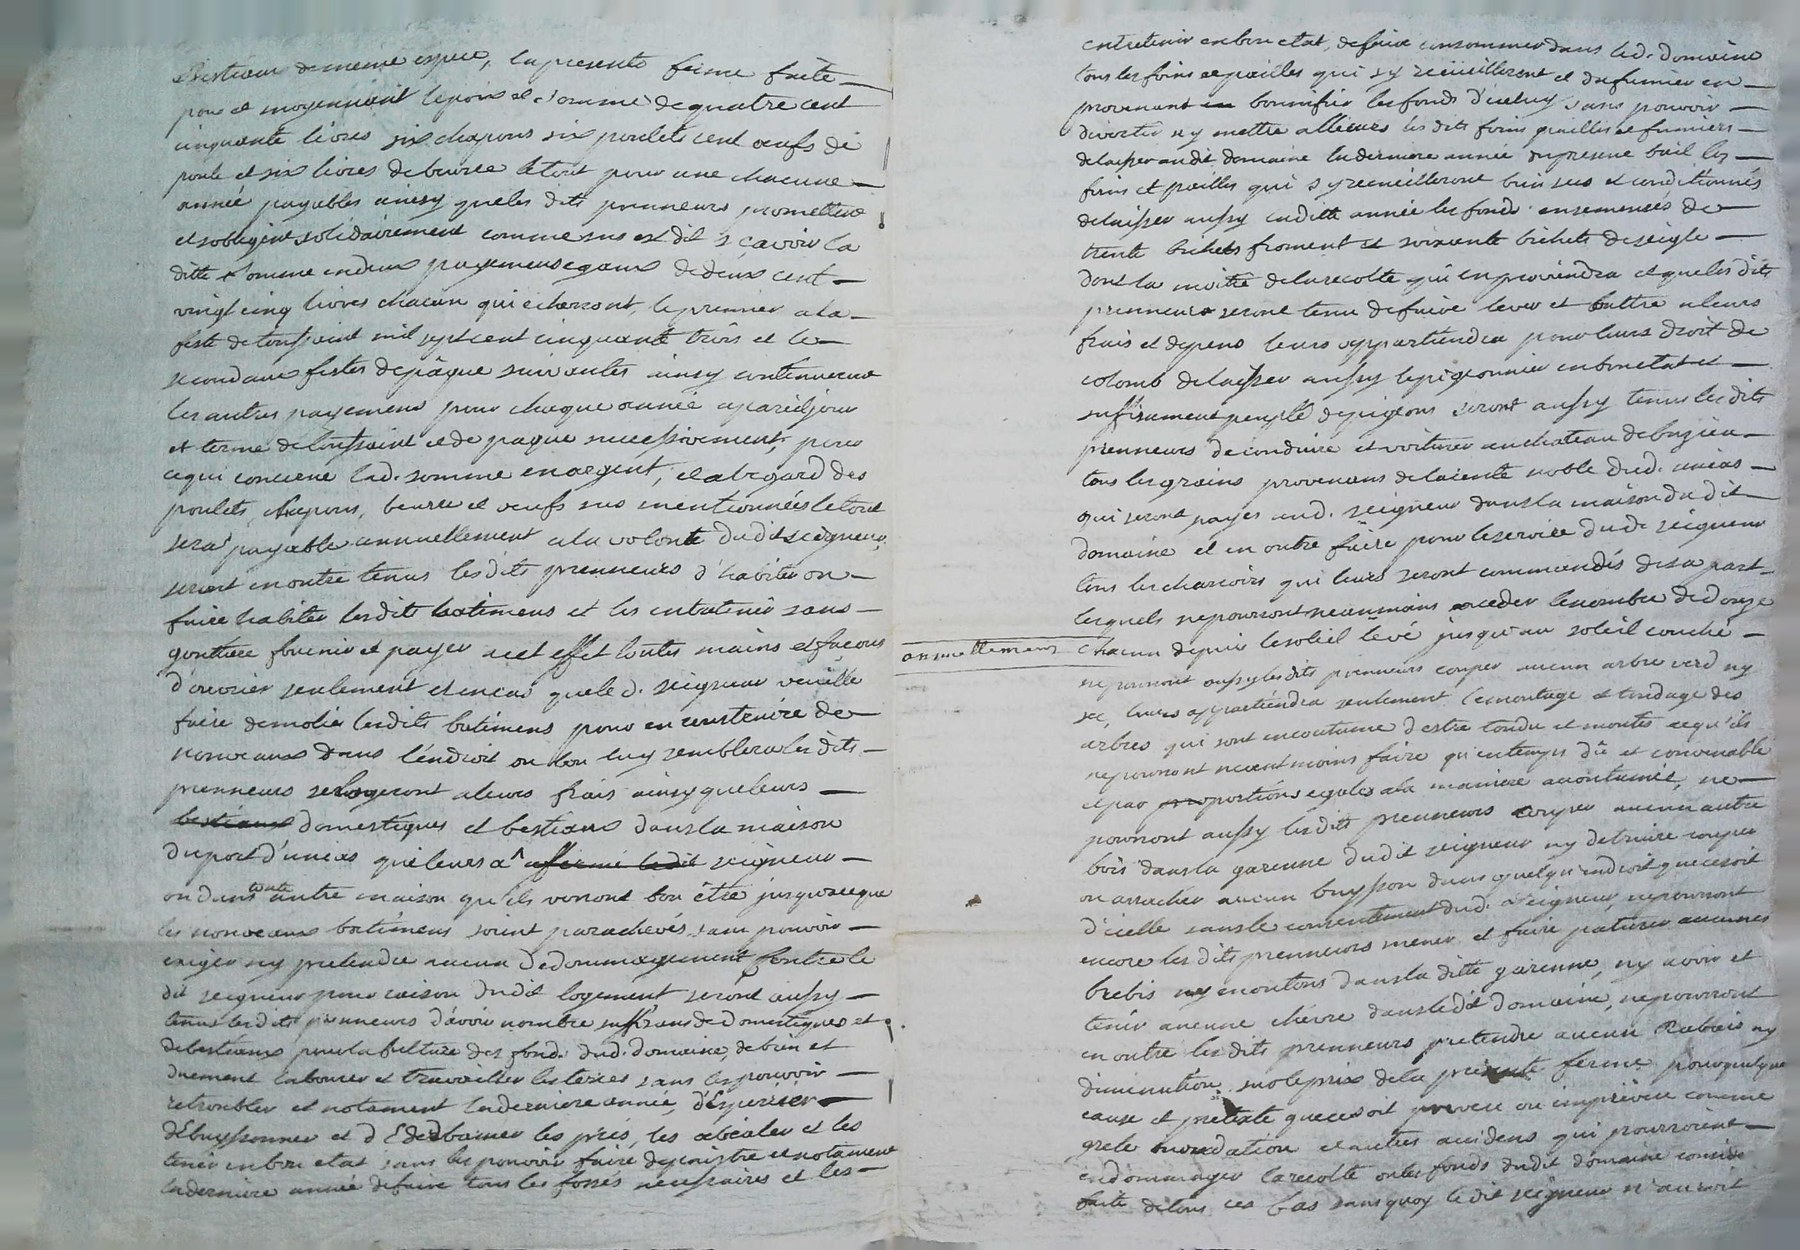 Bestiaux de meme espece, la presente ferme faite
pour et moyennant le prix et somme de quatre cent
cinquante livres six chapons six poulets cent oeufs de
poule et six livres de beurre le tout pour une chacune
année payables ainsy que les dits prenneurs promettent
et sobligent solidairement comme sus est dit sçavoir la
ditte somme en deux payemens egaux de deux cent
vingt cinq livres chacun qui écherront, le premier a la
feste de toussaint mil sept cent cinquante trois et le
second aux festes de pâque suivantes ainsy continueront
les autres payemens pour chaque année a pareil jour
et terme de toussaint et de paque successivement, pour
ce qui concerne lad. somme en argent, et a legard des
poulets, chapons, beurre et oeufs sus mentionnés le tout
sera payable annuellement a la volonté du dit seigneur,
seront en outre tenus les dits prenneurs d'habiter ou
faire habiter les dits batimens et les entretenir sans
gouttiere fournir et payer a cet effet toutes mains et façons
d'ouvrier seulement et en cas que le d. seigneur veuille
faire demolir les dits batimens pour en construire de
nouveaux dans l'endroit ou bon luy semblera les dits
prenneurs se logeront a leurs frais ainsy que leurs
bestiaux domestiques et bestiaux dans la maison
du port d'unias que leurs a affermé le dit seigneur
ou dans toutte autre maison qu'ils verront bon être jusqu'a ce que
les nouveaux batimens soient parachevés sans pouvoir
exiger ny pretendre aucun dedommagement contre le
dit seigneur pour raison du dit logement seront aussy
tenus les dits prenneurs d'avoir nombre suffisant de domestiques et
de bestiaux pour la culture des fond. dud. domaine, de bien et
duement labourer et travailler les terres sans les pouvoir
retroubler et notament la derniere année, d'Espierrer
d'Ebuyssonner et d'Ederbomer les prés, les abealer et les
tenir en bon etat sans les pouvoir faire depaistre et notament
la derniere année de faire tous les fossés necessaires et les
entretenir en bon etat, de faire consommer dans led. domaine
tous les foins et pailles qui s'y recueilleront et du fumier en
provenant en bonnifier les fonds d'iceluy sans pouvoir
divertir ny mettre allieurs les dits foins pailles et fumiers
de laisser au dit domaine la derniere année du present bail les
foins et pailles qui s'y recueilleront bien secs et conditionnés
de laisser aussy laditte année les fonds ensemencés de
trente bichets froment et soixante bichets de seigle
dont la moitié de la recolte qui en proviendra et que les dits
prenneurs seront tenu de faire lever et battre a leurs
frais et depens leurs appartiendra pour leurs droit de
colomb de laisser aussy le pigeonnier en bon etat et
suffisament peuplé de pigeons seront aussy tenus les dits
prenneurs de conduire et voiturer au chateau de buzieu
tous les grains provenans de la cente noble dud. unias
qui seront payés aud. seigneur dans la maison du dit
domaine et en outre faire pour le service dud. seigneur
tous les charrois qui leurs seront commandés de sa part
lesquels ne pourront neanmoins exceder le nombre de douze
annuellement
chacun depuis le soleil levé jusqu'au soleil couché
ne pourront aussy les dits prenneurs couper aucun arbre verd ny
sec, leurs appartiendra seulement lemontage et tondage des
arbres qui sont en coutume d'estre tondu et montés ce qu'ils
ne pourront neantmoins faire qu'en temps dû et convenable
et par proportions egales a la maniere accoutumée, ne
pourront aussy les dits prenneurs couper aucun autre
bois dans la garenne du dit seigneur ny detruire couper
ou arracher aucun buysson dans quelqu'endroit que ce soit
d'icelle sans le consentement dud. seigneur, ne pourront
encore les dits prenneurs mener et faire paturer aucunes
brebis ny moutons dans la ditte garenne, ny avoir et
tenir aucune chévre dans le dit domaine, ne pourront
en outre les dits prenneurs pretendre aucun Rabais ny
diminution sur le prix de la presente ferme pour quelque
cause et pretexte que ce soit prevue ou imprévue comme
grele inondation et autres accidens qui pourroient
endomager la recolte ou les fonds du dit domaine
faite de tous ces bas sans quoy le dit seigneur n'auroit